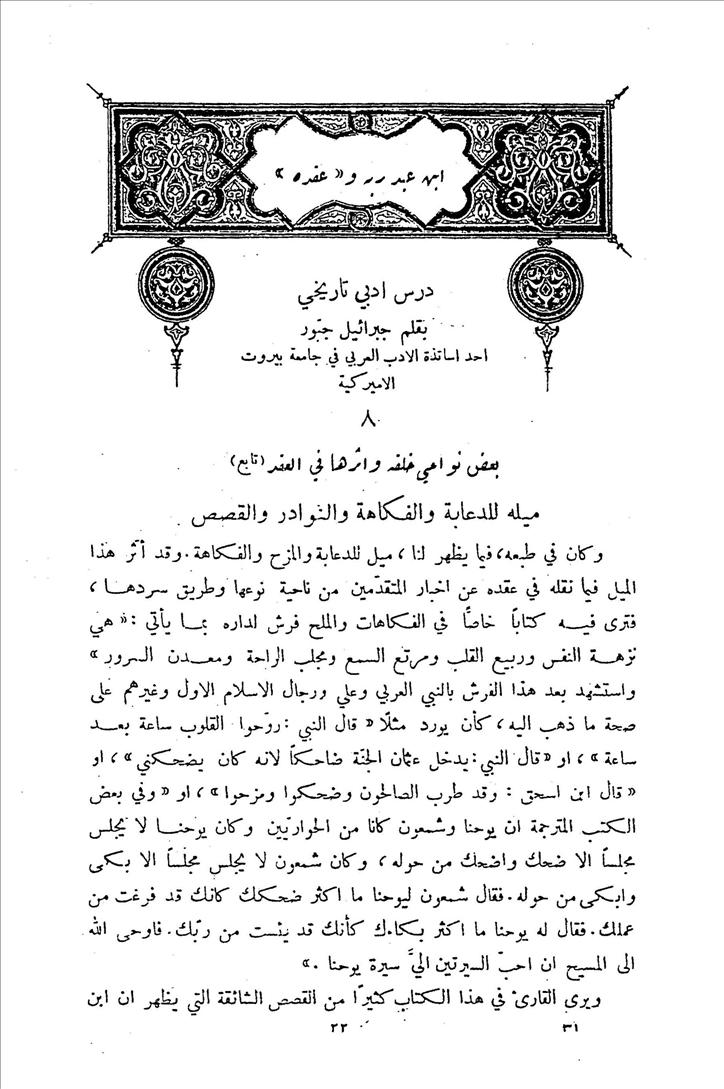 ابن عبد ربه و« عقده »
درس ادبي تاريخي
بقلم جبرائيل جبّور
احد اساتذة الادب العربي في جامعة بيروت
الاميركية
٨
بعض نواحي خلقه واثرها في العقد (تابع)
ميله للدعابة والفكاهة والنوادر والقصص
وكان في طبعه، فيما يظهر لنا ، ميل للدعابة والمزح والفكاهة . وقد أثر هذا
الميل فيما نقله في عقده عن اخبار المتقدّمين من ناحية نوعها وطريق سردها ،
فترى فيه كتاباً خاصاً في الفكاهات والملح فرش لداره بما يأتي : « هي
نزهة النفس وربيع القلب ومرتع السمع ومجلب الراحة ومعدن السرور »
واستشهد بعد هذا الفرش بالنبي العربي وعلي ورجال الاسلام الاول وغيرهم على
صحة ما ذهب اليه ، كأن يورد مثلًا « قال النبي : روّحوا القلوب ساعة بعد
ساعة » ، او « قال النبي : يدخل عثمان الجنّة ضاحكاً لانه كان يضحكني » ، او
« قال ابن اسحق : وقد طرب الصالحون وضحكوا ومزحوا » ، او « وفي بعض
الكتب المترجمة ان يوحنا وشمعون كانا من الحواريّين وكان يوحنا لا يجلس
مجلساً الا ضحك واضحك من حوله ، وكان شمعون لا يجلس مجلساً الا بكى
وابكى من حوله . فقال شمعون ليوحنا ما اكثر ضحكك كانك قد فرغت من
عملك . فقال له يوحنا ما اكثر بكاءك كأنك قد يئست من ربّك . فاوحى الله
الى المسيح ان احبّ السيرتين اليَّ سيرة يوحنا . »
ويرى القارئ في هذا الكتاب كثيرًا من القصص الشائقة التي يظهر ان ابن
٣١
٢٢